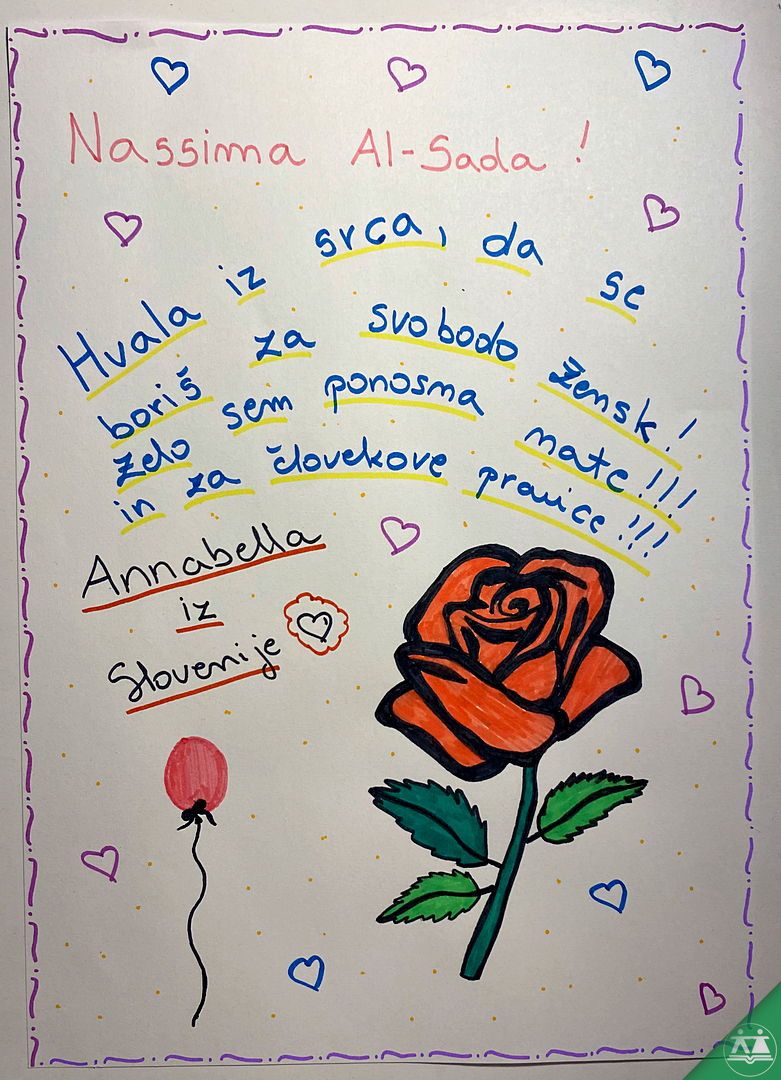 Nassima Al-Sada!
Hvala iz srca, da se
boriš za svobodo žensk!
zelo sem ponosna nate!!!
in za človekove pravice!!!
Annabella
iz
Slovenije